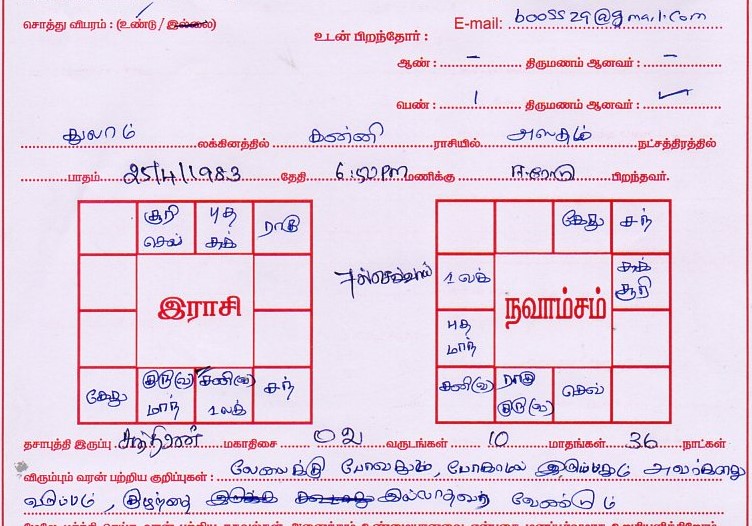 சொத்து விபரம் : (உண்டு / இல்லை)
E-mail: booss29@gmail.com
உடன் பிறந்தோர் :
ஆண் : – திருமணம் ஆனவர் : –
பெண் : 1 திருமணம் ஆனவர் : ✓
துலாம் லக்கினத்தில் கன்னி ராசியில் அஸ்தம் நட்சத்திரத்தில்
பாதம் 25/4/1983 தேதி 6:50 PM மணிக்கு ஈரோடு பிறந்தவர்.
சூரி செவ்
புத சுக்
ராகு
இராசி
கேது
குரு(வ) மாந்
சனி(வ) லக்
சந்
7ல்செவ்வாய்
கேது
சந்
லக்
சுக் சூரி
நவாம்சம்
புத மாந்
சனி(வ)
ராகு குரு(வ)
செவ்
தசாபுத்தி இருப்பு சந்திரன் மகாதிசை 02 வருடங்கள் 10 மாதங்கள் 36 நாட்கள்
விரும்பும் வரன் பற்றிய குறிப்புகள் : வேலைக்கு போவதும், போகாமல் இருப்பதும் அவர்களது
விருப்பம், குழந்தை இல்லாதவர் வேண்டும்